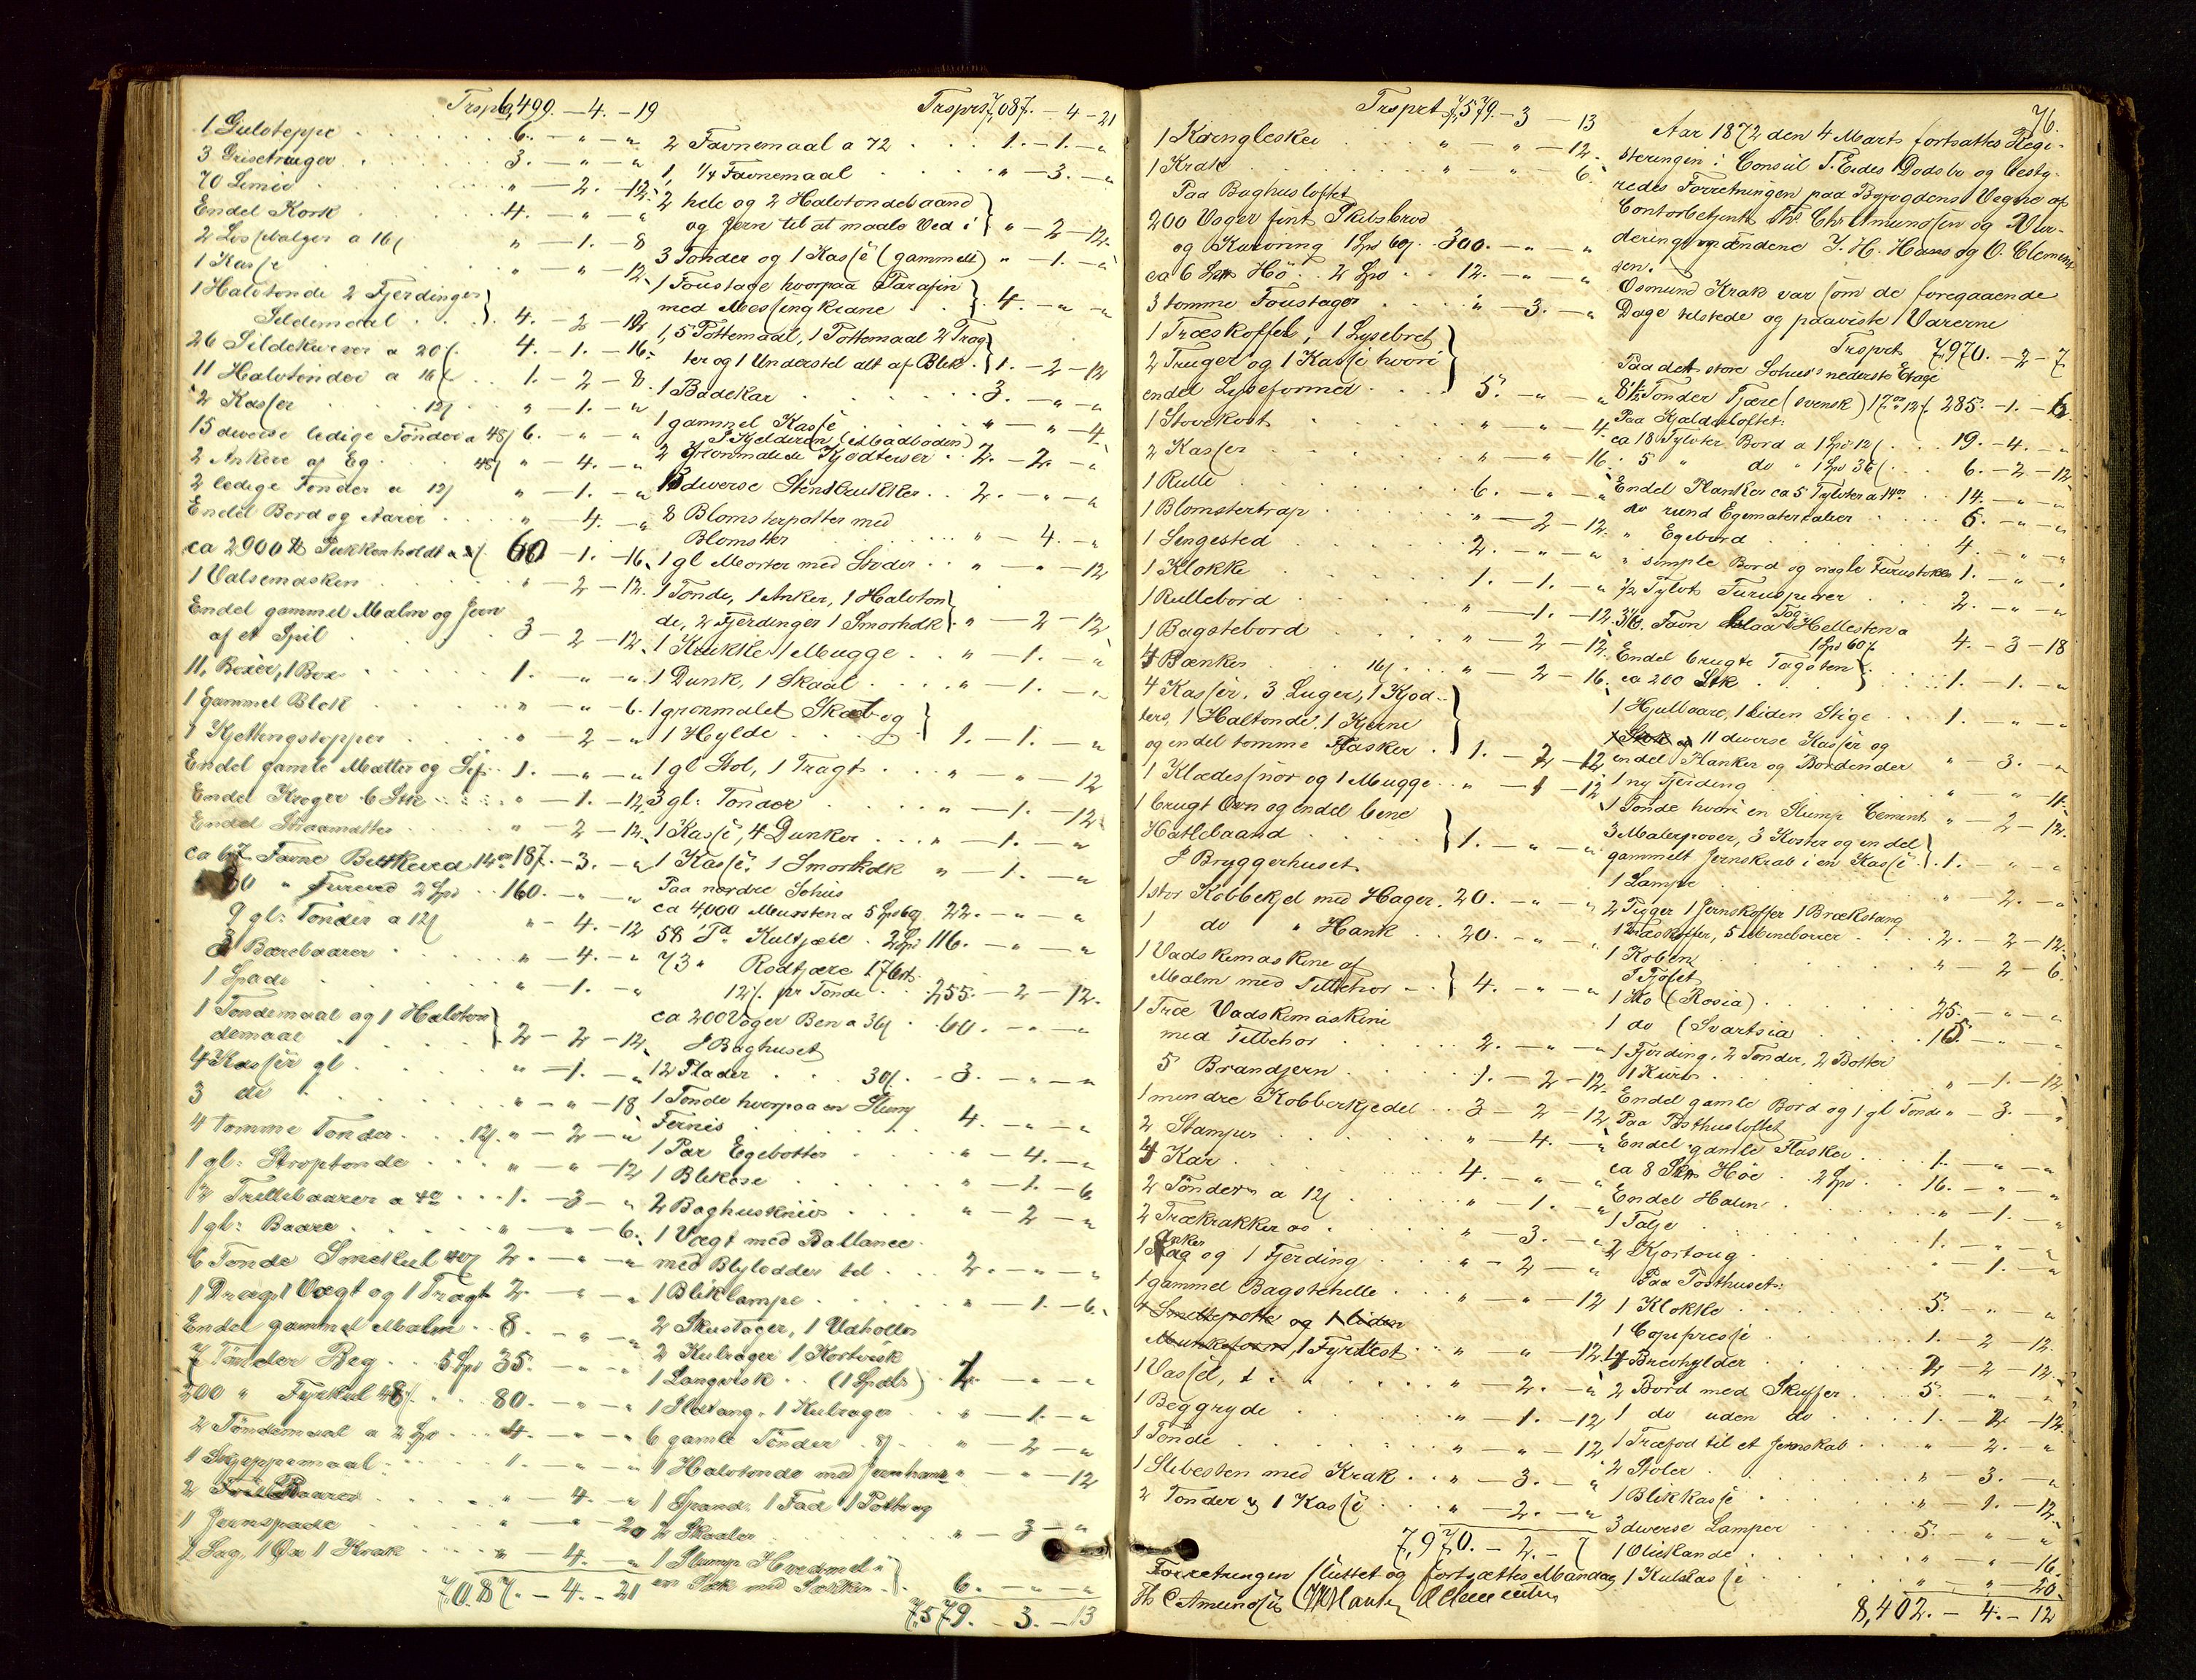 Trsprt 6,499. – 4. – 19
1 Gulvteppe . . . 6. – " – "
3 Grisetruger . . . 3. – " – "
70 Limer . . . " – 2. – 12.
Endel Kork . . . 4. – " – "
2 a 16/ " – 1. – 8
1 Kasse . . . " – " – 12.
1 Halvtønde 2 Fjerdinger
Sildemaal . . 4. – 2 – 12
26 Sildekurver a 20/. 4. – 1. – 16.
11 Halvtønder a 16/ . . 1. – 2 – 8.
2 Kasser . . 12/ " – 1. – "
15 diverse ledige Tønder a 48/ 6. – " – "
2 Ankere af Eg . . 48/ " – 4. – "
2 ledige Tønder a 12/ " – 1. – "
Endel Bord og Aarer . . " 4. – "
ca 2900 Pukkenholdt a 60 – 1. – 16.
1 Valsemaskin . . . " – 2 – 12.
Endel gammel Malm og Jern
af et Spil . . . 3 – 2 – 12.
11. Boxer, 1 Box . . . 1. – " – "
1 gammel Blok . . . " – " – 6.
1 Kjettingstopper . . . " – 2 – "
Endel gamle Matter og 1. – " – "
Endel Kroger 6 Stk . . " – 1. – 12
Endel Straamatter . . . " – 2 – 12.
ca 67 Favne Birkeved 14 187. – 3. – "
80 " Fureved 2 Spd . . 160. – " – "
9 gl: Tønder a 12/ " – 4. – 12
3 Bærebaarer . . . " – 4. – "
1 Spade . . . " – 1. – "
1 Tøndemaal og 1 Halvtøn
demaal . . . 2 – 2 – 12
4 Kasser gl . . . " – 1. – "
3 do . . . " – " – 18
4 tomme Tønder . . 12/. " – 2 – "
1 gl: Stroptønde . . . " – " – 12
12 Trillebaarer a . . . 1. – 3 – "
1 gl: Baare . . . " – " – 6.
6 Tønde Smekul 40/ 2. – " – "
1 Drag, 1 Vægt og 1 Tragt 2. – " – "
Endel gammel Malm . . 8. – " – "
7 Tønder Beg . . 5 Spd 35. – " – "
200 " Fyrkul 48/. 80. – " – "
2 Tøndemaal a 2 Spd . . . 4. – " – "
1 Skjeppemaal . . . 1. – " – "
2 Baarer . . . " – 4. – "
1 Jernspade . . . " – " – 20
1 Sag, 1 Øx 1 Krak . . . " – 4. – "
7087. – 4. – 21
Trsprt 7,087. – 4 – 21
2 Favnemaal a 72 . . . 1. – 1. – "
1, 1/4 Favnemaal . . . " – 3. – "
2 hele og 2 Halvtøndebaand
og Jern til at maale Ved i " – 2 – 12.
3 Tønder og 1 Kasse (gammelt) " – 1. – "
1 Foustage hvorpaa Parafin
med Messingkrane . . 4. – " – "
1, 5 Pottemaal, 1 Pottemaal 2 Trag
ter og 1 Understel alt af Blik . 1. – 2 – 12
1 Badekar . . . 3. – " – "
1 gammel Kasse . . . " – " – 4
I Kjelderen (Madboden)
2 grønmalede Kjødteiner . . 2. – 2. – "
13 diverse Stenkrukker . . 2. – " – "
8 Blomsterpotter med
Blomster . . . " – 4. – "
1 gl Morter med Støder . . " – " – 12
1 Tønde, 1 Anker, 1 Halvtøn
de, 2 Fjerdinger 1 Smørholk . " – 2 – 12
1 Krukke 1 Mugge . . " – 1. – "
1 Dunk, 1 Skaal . . . . " – 1. – "
1 grønmalet Skab og
1 Hylde . . . 1. – 1. – "
1 gl Stol, 1 Tragt . . . " " – 12
3 gl: Tønder . . . " – 1. – 12
1 Kasse, 4 Dunker . . . " – 1. – "
1 Kasse, 1 Smørholk " – 1. – "
Paa nordre Søhus
ca 4000 Mursten a 5 Spd 60/ 22. – " – "
58 Td Kultjære . 2 Spd 116. – " – "
73 " Rodtjære 1
12/. pr Tønde . . 255. – 2 – 12.
ca 200 Voger Ben a 36/ . 60. – " – "
I Baghuset
12 Plader . . . 30/. . 3. – " – "
1 Tønde hvorpaa en Slump
Fernis . . . 4. – " – "
1 Par Egebøtter . . . " – 4. – "
1 Blikøse . . . " – 1. – 6
2 Baghusknive . . . " – 2 – "
1 Vægt med Ballance
med Blylodder til . . . 2. – " – "
1 Bliklampe . . . " – 1. – 6.
2 Skustøger, 1 Udholler
2 Kulrager 1 Kortvisk
1 Langvisk . . (1 Spd) . 2. – " – "
1 Ildtang, 1 Kulrager . . " – 1. – "
6 gamle Tønder . 8/. " – 2 – "
1 Halvtønde med Jernhank " – " – 12
1 Spand, 1 Fad 1 Potte og
2 Skaaler . . . " – 3 – "
1 Slump Hvedmel i
en Sæk med Sækken . 6. – " – "
7,579. – 3. – 13
Trsprt 7,579. – 3 – 13
1 Karnglesker . . . " – " – 12.
1 Krak . . . " – " – 6
Paa Baghusloftet
200 Voger fint Skibsbrød
og Kavring 1 Spd 60/. 300. – " – "
ca 6 Hø . . 2 Spd . . 12. – " – "
3 tomme Foustager . . . " – 3. – "
1 Træskoffel, 1 Lysebret
2 Truger og 1 Kasse hvori
endel Lyseformer . . . 5. – " – "
1 Stovekost . . . " – " – 4
2 Kasser . . . " – " – 16
1 Rulle . . . 6. – " – "
1 Blomstertrap . . . " – 2 – 12.
1 Sengested . . . 2. – " – "
1 Klokke . . . 1. – 1. – "
1 Rullebord . . . " – 1. – 12.
1 Bagstebord . . . " – 2 – 12.
4 Bænker . . 16/. . " – 2 – 16.
4 Kasser, 3 Luger, 1 Kjød-
ters, 1 Haltønde, 1 Kjerne
og endel tomme Flasker . 1. – 2 – 12
1 Klædessnor og 1 Mugge . . " – 1 – 12
1 brugt Ovn og endel bene
Hatlebaand . . . 1. – " – "
I Bryggerhuset
1 stor Kobbekjel med Hager . 20. – " – "
1 do " Hank . . 20. – " – "
1 Vadskemaskine af
Malm med Tilbehør . . 4. – " – "
1 Træ Vadskemaskine
med Tilbehør . . . 2. – " – "
5 Brandjern . . . 1. – 2 – 12
1 mindre Kobberkjedel . . 3 – 2 – 12
2 Stamper . . . " – 4. – "
4 Kar . . . 4. – " – "
2 Tønder a 12/ . . . " – 1. – "
2 Trækrakker . . . " – 3. – "
1 Anker og 1 Fjerding . . . " – 2 – "
1 gammel Bagstehelle . . . " – " – 12
1 Smeltepotte og 1 liden
Munkeform, 1 Fyrilest . . " – " – 12.
1 Vassel, . . . " – 2. – "
1 Beggryde . . . " – 1. – 12
1 Tønde . . . " – " – 12
1 Slibesten med Krak . . . " – 3. – "
2 Tønder og 1 Kasse . . . " – 2. – "
7,970. – 2. – 7
Forretningen sluttet og fortsættes Mandag
Th C Amundsen
76.
Aar 1872 den 4 Marts fortsattes Regi-
steringen i Consul T. Eides Dødsbo og besty-
redes Forretningen paa Byfogdens Vegne af
Contorbetjent Th: Chr: Amundsen og Vur-
deringsmændene J. H. Hans og O. Clemen-
sen.
Osmund Krak var som de foregaaende
Dage tilstede og paaviste Varerne
Trsprt 7,970. – 2 – 7
Paa det store Søhus's nederste Etage
81 1/2 Tønder Tjære (svensk) 17 12/. 285. – 1. – 6
Paa Kjalderloftet:
ca 18 Tylvter Bord a 1 Spd 12/. . . 19. – 4. – "
" 5 " do " 1 Spd 36/. . . 6. – 2 – 12
Endel Planker ca 5 Tylvter a 14 . . 14. – " – "
do rund Egematerialier . . . 6. – " – "
" Egebord . . . 4. – " – "
" simple Bord og nogle Furustokke 1. – " – "
1/2 Tylvt Furusperer . . . 2. – " – "
3 Favn Tag-Hellesten a
1 Spd 60/. 4. – 3 – 18
Endel brugte Tagsten
ca 200 Stk . . . 1. – 1. – "
1 Hjulbaare, 1 liden Stige . . 1. – " – "
11 diverse Kasser og
endel Planker og Bordender " – 3. – "
1 ny Fjerding . . . " – " – 11.
1 Tønde hvori en Slump Cement " – 2 – 12.
3 Malerprover, 3 Koster og en del
gammelt Jernskrab i en Kasse . 1. – " – "
1 Lampe . . . " – 2. – "
2 Tigger 1 Jernskoffer 1 Brækstang
1 Træskoffer, 5 Mineborer . . . 2. – 2 – 12.
1 Koben . . . " – 2 – 6.
I Fjøset
1 Ko (Rosia) . . . 25. – " – "
1 do (Svartsia . . . 16. – " – "
1 Fjerding, 2 Tønder, 2 Bøtter
1 Kurv . . . " – 1. – 12
Endel gamle Bord og 1 gl Tønde " – 3. – "
Paa Posthusloftet
Endel gamle Flasker . . . 1. – " – "
ca 8 Høe . . 2 Spd . . 16. – " – "
Endel Halm . . . " – 1. – "
1 Talje . . . 1. – " – "
2 Kjortoug . . . " – 1. – "
Paa Posthuset:
1 Klokke . . . 5. – " – "
1 Copipresse . . . 1. – 2 12.
14 Brevhylder . . . 2 – 2 – 12.
2 Bord med Skuffer . . . 5. – " – "
1 do uden do . . . 1. – 2 – 12.
1 Træfod til et Jernskab . . . " – 2. – "
2 Stoler . . . " – 3. – "
1 Blikkasse . . . " – 1. – 12.
3 diverse Lamper . . . 5. – " – "
1 Oliekande . . . " – " – 16.
1 Kulkasse . . . " – " – 20
8,402. – 4. – 12